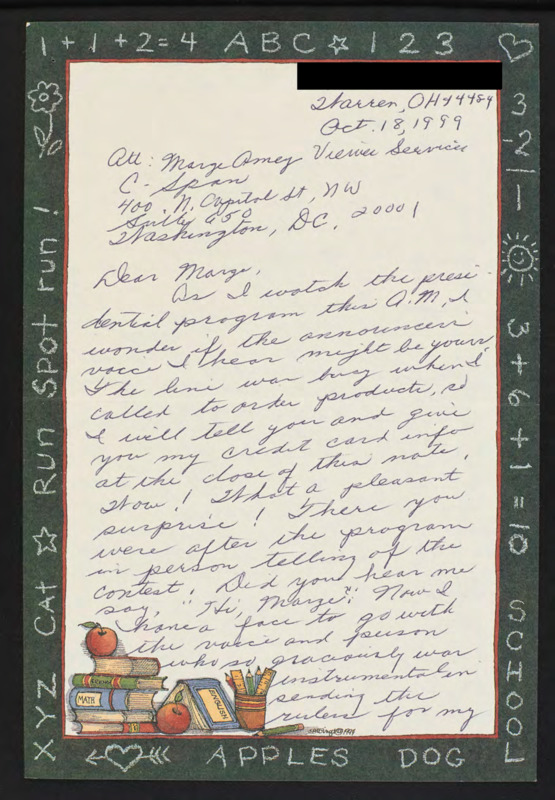 1 + 1 + 2 = 4 ABC ☆ 1 2 3
3
-2
1
3 + 6 + 1 = 10
SCHOOL
Run Spot run!
XYZ CAt ☆
APPLES DOG
Warren, OH 44484
Oct. 18, 1999
Att: Marge Amey Viewer Services
C-Span
400 N. Capitol St, NW
Suite 650
Washington, DC, 20001
Dear Marge,
As I watch the presi-
dential program this A.M., I
wonder if the announcer's
voice I hear might be yours.
The line was busy when I
called to order products, so
I will tell you and give
you my credit card info
at the close of this note.
Wow! What a pleasant
surprise! There you
were after the program
in person telling of the
contest. Did you hear me
say, "Hi, Marge"? Now I
have a face to go with
the voice and person
who so graciously was
instrumental in
sending the
rulers for my
MATH
ENGLISH